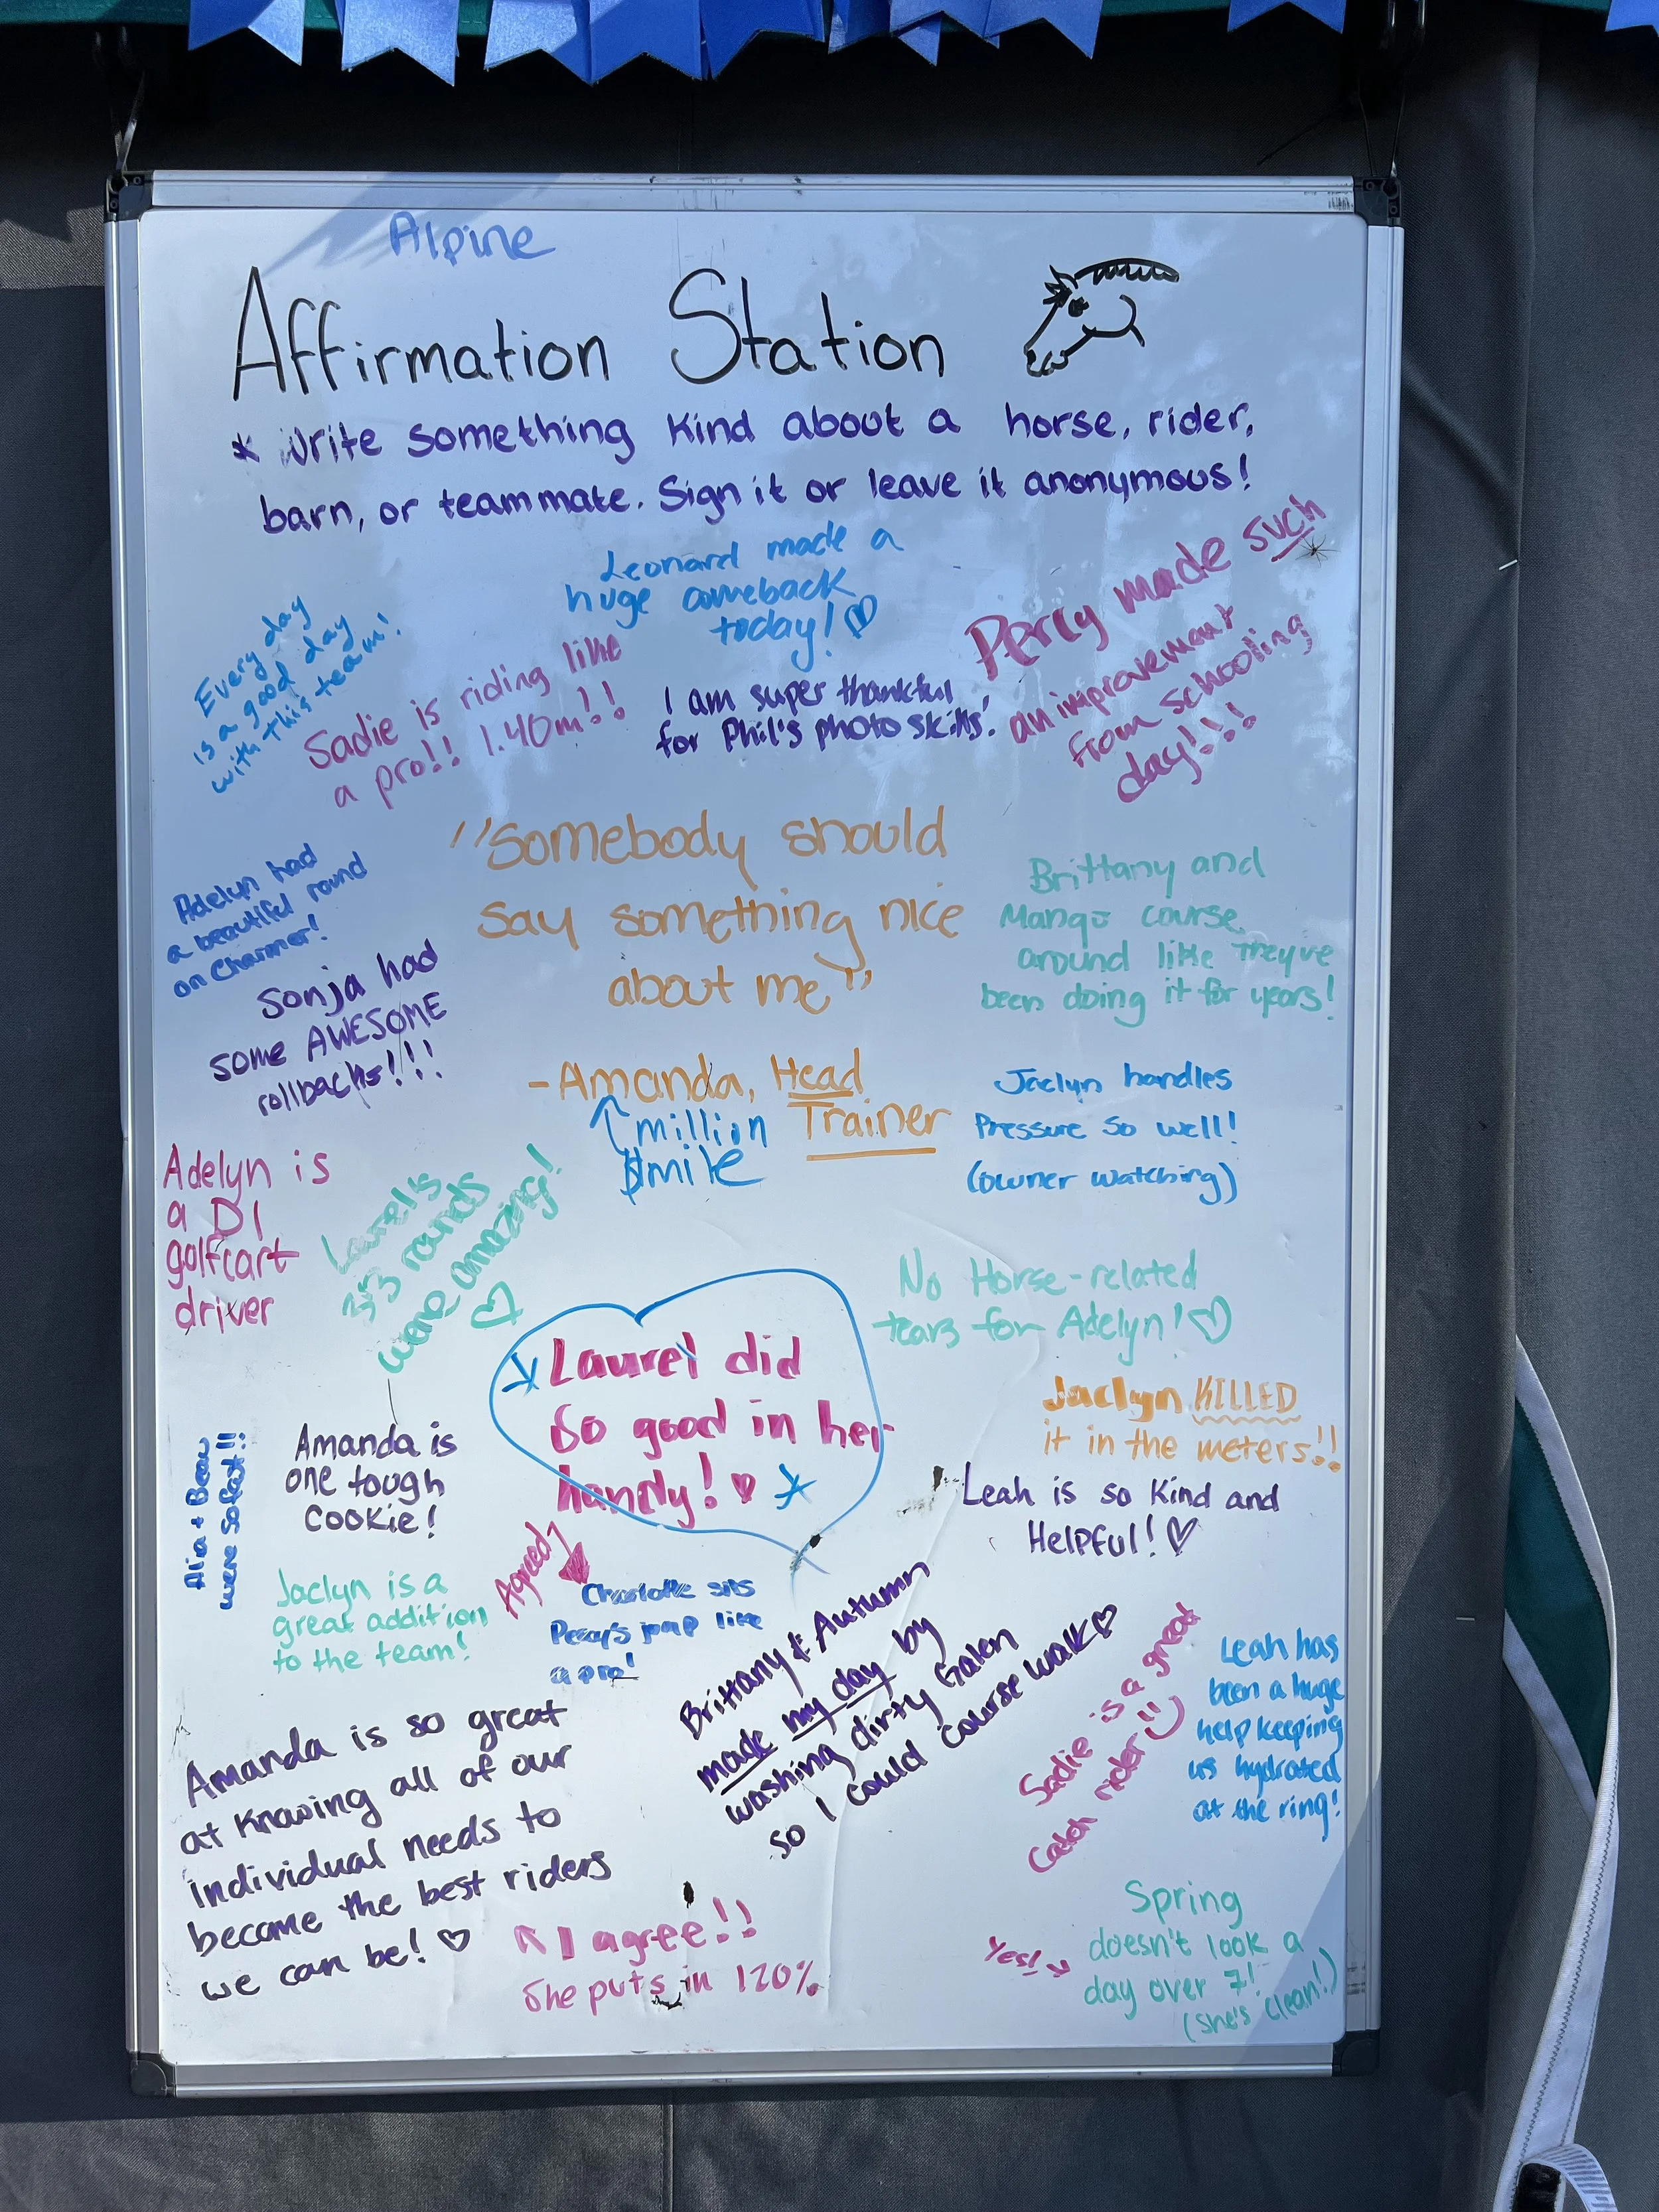 Alpine
Affirmation Station
* Write something kind about a horse, rider,
barn, or teammate. Sign it or leave it anonymous!
Leonard made a
huge comeback
today! ♡
Every day
is a good day
with this team!
Sadie is riding like
a pro!! 1.40m!!
I am super thankful
for Phil's photo skills!
Percy made such
an improvement
from schooling
day!!!
"Somebody should
say something nice
about me"
- Amanda, Head
Trainer
↑ million
$ mile
Adelyn had
a beautiful round
on Charmer!
Sonja had
some AWESOME
rollbacks!!!
Brittany and
Mango course
around like they've
been doing it for years!
Jaclyn handles
Pressure so well!
(owner watching)
Adelyn is
a D1
golfcart
driver
Laurel's
3'3 rounds
were amazing!
♡
No Horse-related
tears for Adelyn! ♡
Laurel did
so good in her
handy! ♥
Jaclyn KILLED
it in the meters!!
Amanda is
one tough
cookie!
were so fast!!
Leah is so kind and
Helpful! ♡
Agreed
Jaclyn is a
great addition
to the team!
Charlotte sits
Percy's jump like
a pro!
Brittany & Autumn
made my day by
washing dirty Galen
so I could course walk ♡
Sadie is a great
catch rider!!
Leah has
been a huge
help keeping
us hydrated
at the ring!
Amanda is so great
at knowing all of our
individual needs to
become the best riders
we can be! ♡
↑ I agree!!
She puts in 120%
Yes! →
Spring
doesn't look a
day over 7!
(she's clean!)